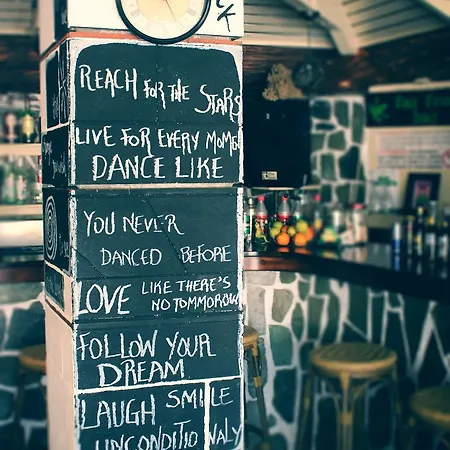 REACH FOR THE STARS
LIVE FOR EVERY MOME
DANCE LIKE
YOU NEVER
DANCED BEFORE
LOVE LIKE THERE'S
NO TOMMORROW
FOLLOW YOUR
DREAM
LAUGH SMILE
UNCONDITIONALY